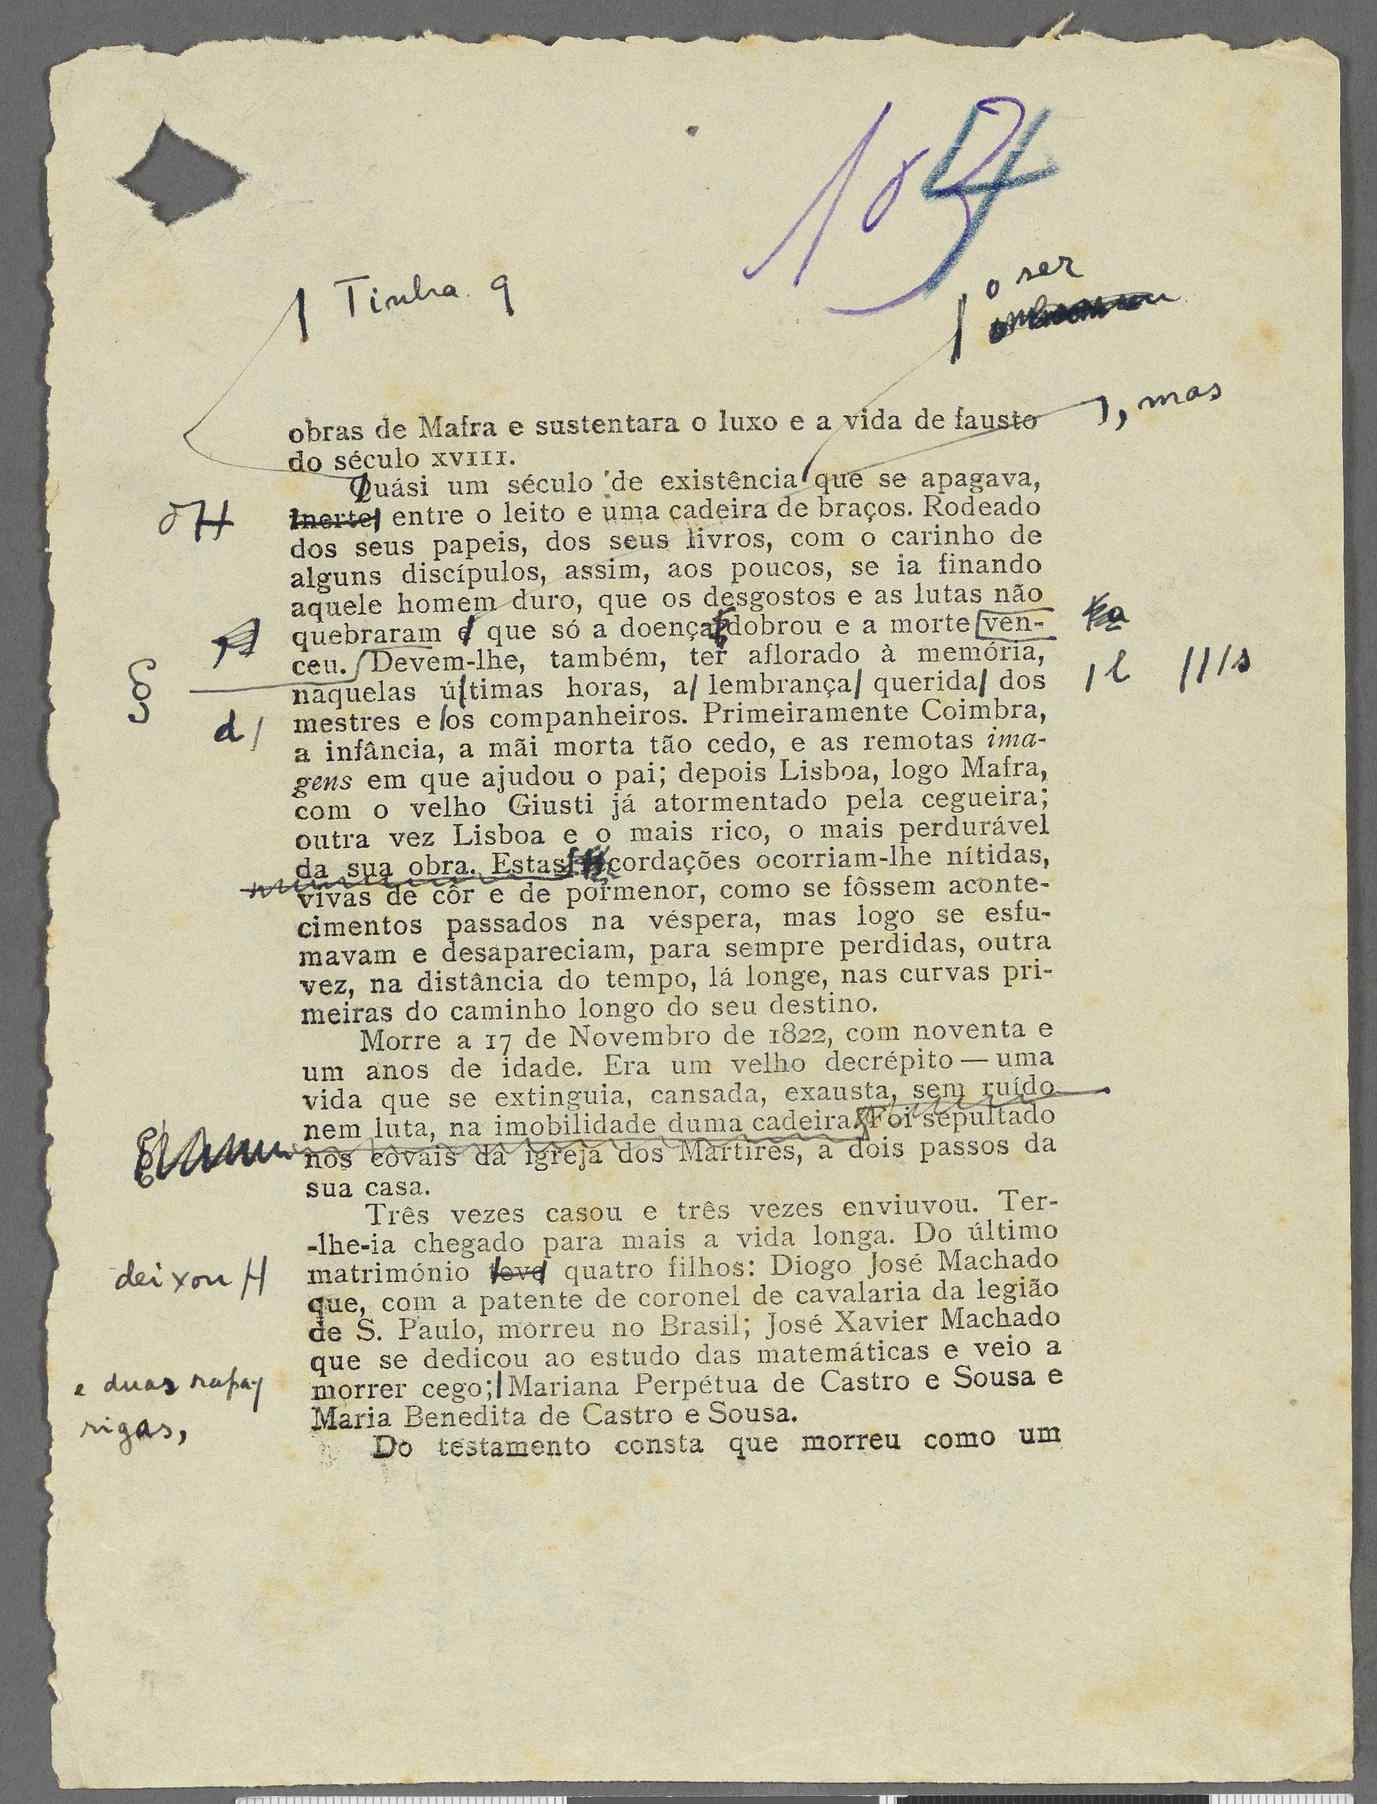 Tinha q
o ser
, mas
obras de Mafra e sustentara o luxo e a vida de fausto
do século XVIII.
Quási um século de existência que se apagava,
Inerte entre o leito e uma cadeira de braços. Rodeado
dos seus papeis, dos seus livros, com o carinho de
alguns discípulos, assim, aos poucos, se ia finando
aquele homem duro, que os desgostos e as lutas não
quebraram e que só a doença dobrou e a morte ven-
a
§
ceu. Devem-lhe, também, ter aflorado à memória,
naquelas ú timas horas, a lembrança querida dos
l s
d
mestres e os companheiros. Primeiramente Coimbra,
a infância, a mãi morta tão cedo, e as remotas ima-
gens em que ajudou o pai; depois Lisboa, logo Mafra,
com o velho Giusti já atormentado pela cegueira;
outra vez Lisboa e o mais rico, o mais perdurável
da sua obra. Estas cordações ocorriam-lhe nítidas,
vivas de côr e de pormenor, como se fôssem aconte-
cimentos passados na véspera, mas logo se esfu-
mavam e desapareciam, para sempre perdidas, outra
vez, na distância do tempo, lá longe, nas curvas pri-
meiras do caminho longo do seu destino.
Morre a 17 de Novembro de 1822, com noventa e
um anos de idade. Era um velho decrépito — uma
vida que se extinguia, cansada, exausta, sem ruído
nem luta, na imobilidade duma cadeira. Foi sepultado
nos covais da igreja dos Mártires, a dois passos da
sua casa.
Três vezes casou e três vezes enviuvou. Ter-
-lhe-ia chegado para mais a vida longa. Do último
deixou
matrimónio teve quatro filhos: Diogo José Machado
que, com a patente de coronel de cavalaria da legião
de S. Paulo, morreu no Brasil; José Xavier Machado
que se dedicou ao estudo das matemáticas e veio a
e duas rapa-
morrer cego; Mariana Perpétua de Castro e Sousa e
rigas,
Maria Benedita de Castro e Sousa.
Do testamento consta que morreu como um